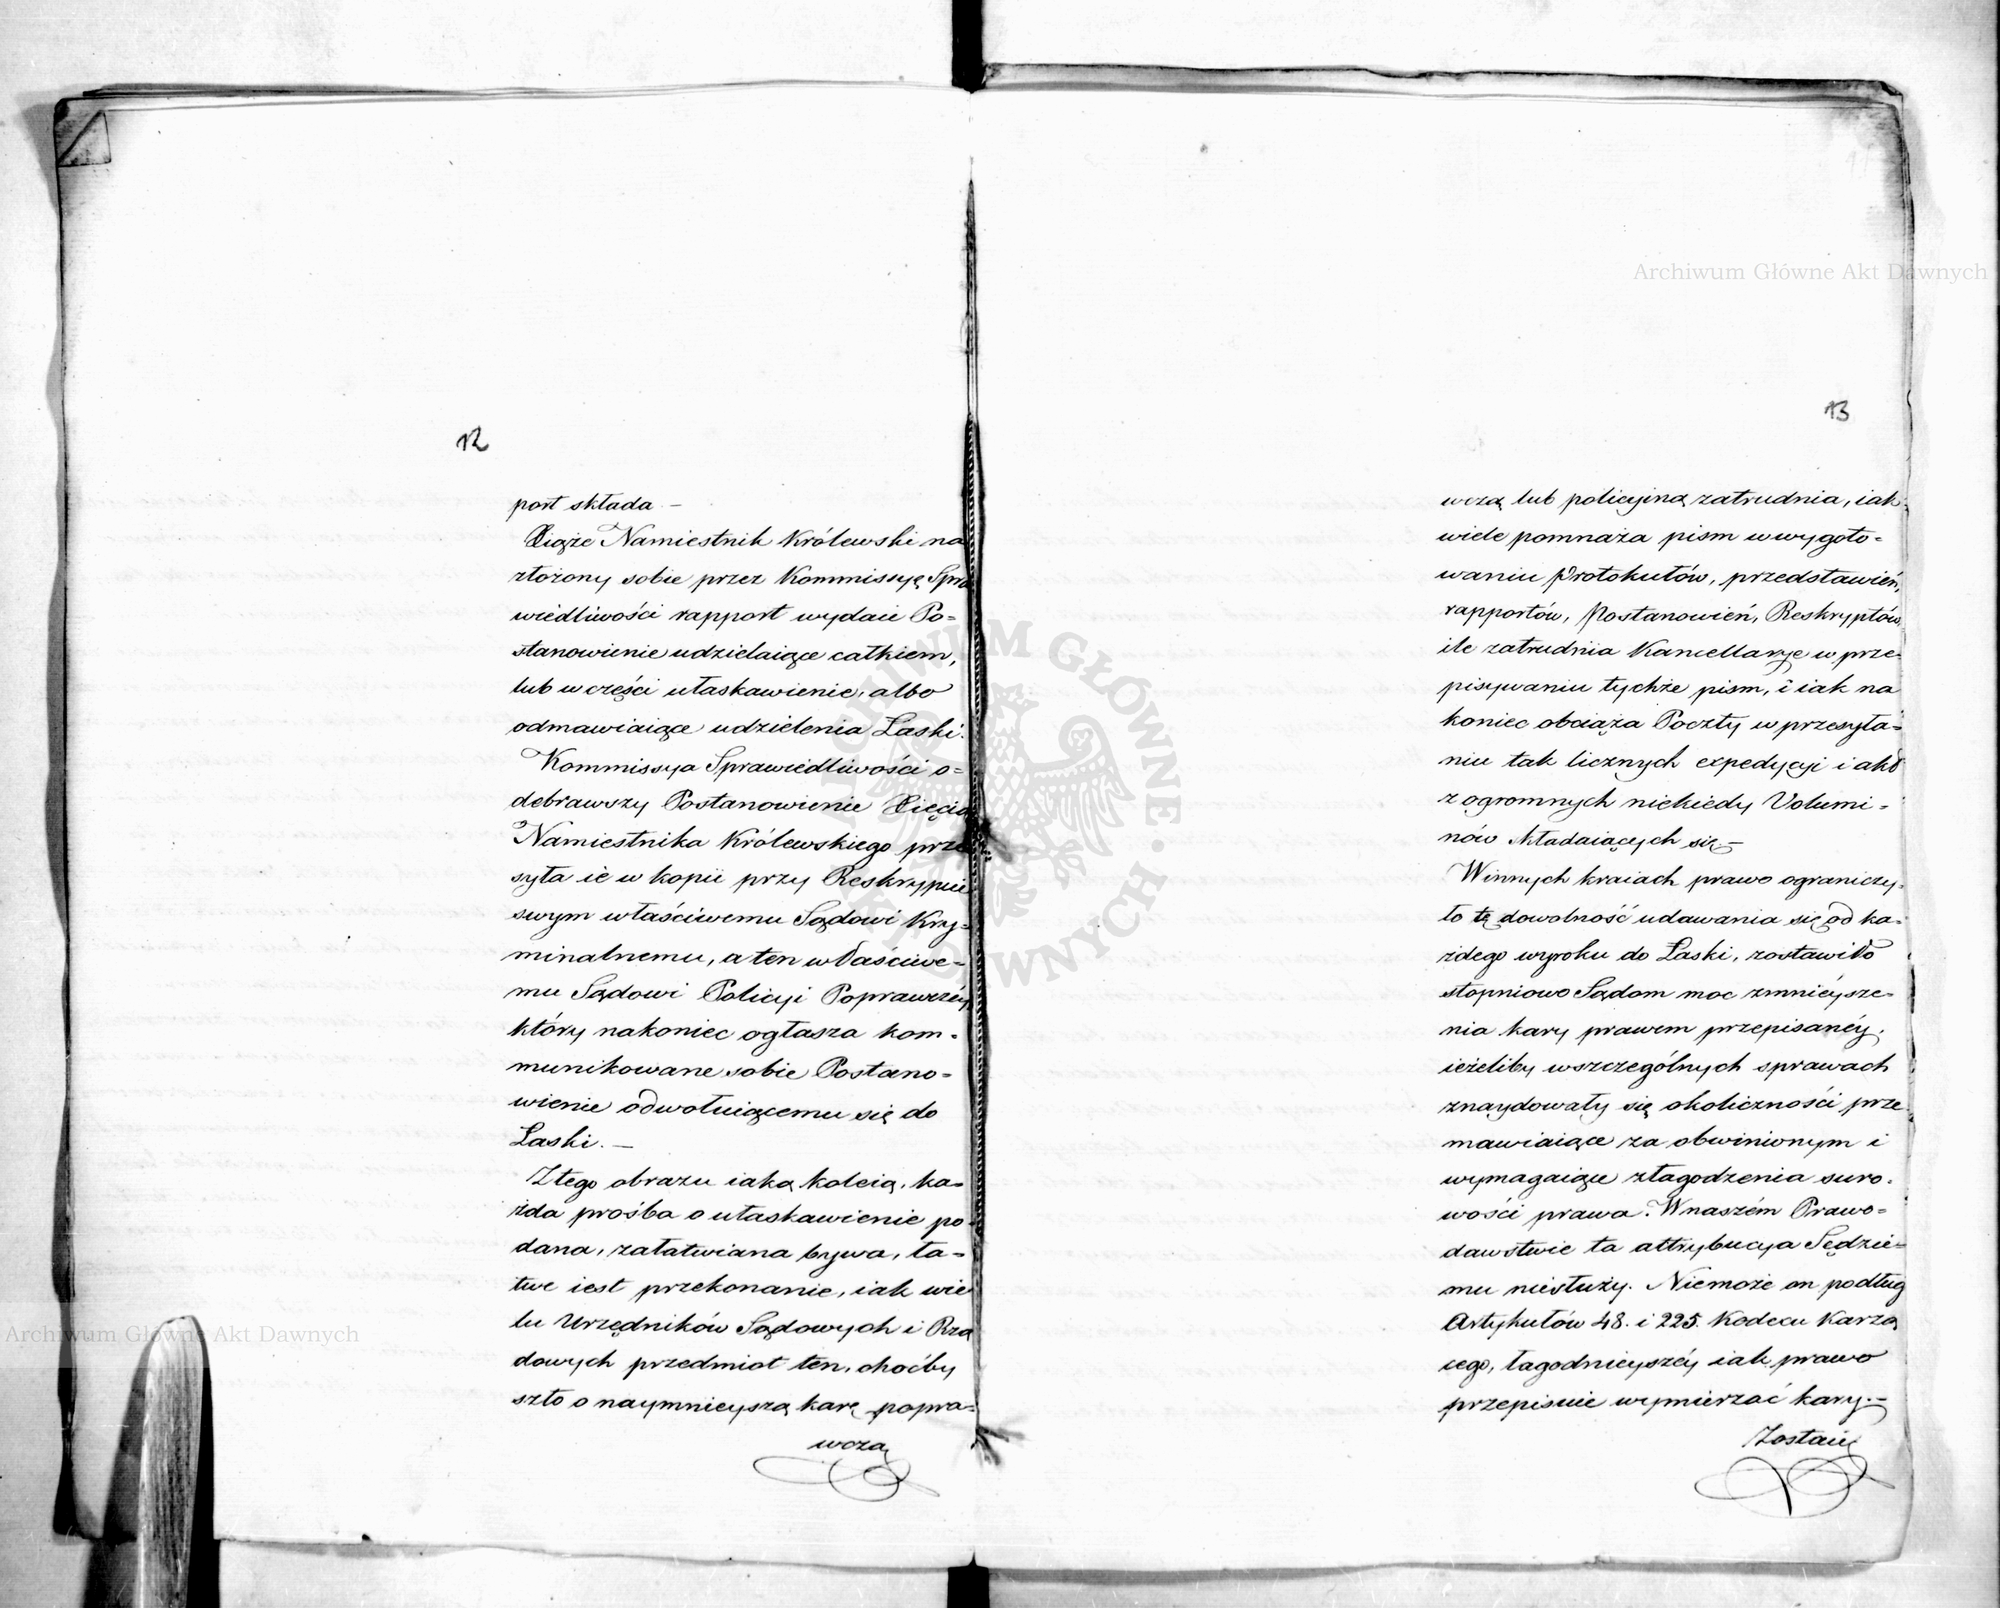 12
port składa –
Xiąże Namiestnik Królewski na
złożony sobie przez Kommissyę Spra
wiedliwości rapport wydaie Po=
stanowienie udzielaiące całkiem,
lub w części ułaskawienie, albo
odmawiaiące udzielenia Łaski.
Kommissya Sprawiedliwości o=
debrawszy Postanowienie Xięcia
Namiestnika Królewskiego prze
syła ie w kopii przy Reskrypcie
swym właściwemu Sądowi Kry=
minalnemu, a ten właściwe=
mu Sądowi Policyi Poprawczéy
który nakoniec ogłasza kom=
munikowane sobie Postano=
wienie odwołuiącemu się do
Łaski. –
Z tego obrazu iaką koleią, ka=
żda prośba o ułaskawienie po=
dana, załatwiana bywa, ła=
twe iest przekonanie, iak wie
lu Urzędników Sądowych i Rzą
dowych przedmiot ten, choćby
szło o naymnieyszą karę popra=
wczą
13
wczą lub policyiną zatrudnia, iak
wiele pomnaża pism w wygoto=
waniu Protokułów, przedstawień,
rapportów, Postanowień, Reskryptów,
ile zatrudnia Kancellarye w prze=
pisywaniu tychże pism, i iak na
koniec obciąża Poczty w przesyła=
niu tak licznych expedycyi i akt
z ogromnych niekiedy Volumi=
nów składaiących się –
W innych kraiach prawo ograniczy=
ło tę dowolność udawania się od ka=
żdego wyroku do Łaski, zostawiło
stopniowo Sądom moc zmnieysze=
nia kary prawem przepisanéy,
ieżeliby w szczególnych sprawach
znaydowały się okoliczności prze
mawiaiące za obwinionym i
wymagaiące złagodzenia suro=
wości prawa. W naszém Prawo=
dawstwie ta attrybucya Sędzie=
mu niesłuży. Niemoże on podług
Artykułów 48. i 225. Kodexu Karzą
cego, łagodnieyszéy iak prawo
przepisuie wymierzać kary. –
Zostaie
Archiwum Główne Akt Dawnych
Archiwum Główne Akt Dawnych